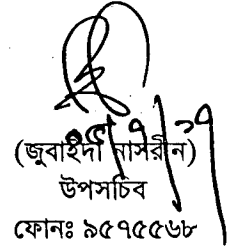 (জুবাইদা নাসরীন)
উপসচিব
ফোনঃ ৯৫৭৫৫৬৮